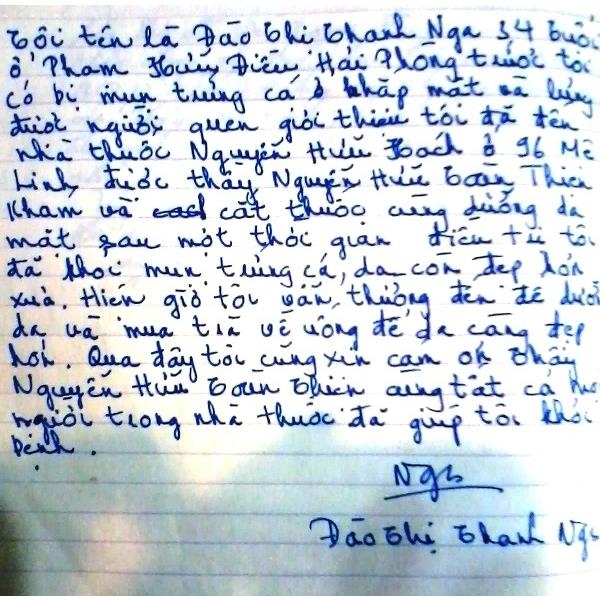 Tôi tên là Đào Thị Thanh Nga 34 tuổi
ở Phạm Hữu Điều Hải Phòng trước tôi
có bị mụn trứng cá ở khắp mặt và lưng
được người quen giới thiệu tôi đã đến
nhà thuốc Nguyễn Hữu Hách ở 96 Mê
Linh, được thầy Nguyễn Hữu Toàn Thiên
Khám và cắt thuốc cùng dưỡng da
mặt sau một thời gian điều trị tôi
đã khỏi mụn trứng cá, da còn đẹp hơn
xưa. Hiện giờ tôi vẫn thường đến để dưỡng
da và mua trà về uống để da càng đẹp
hơn. Qua đây tôi cũng xin cảm ơn thầy
Nguyễn Hữu Toàn Thiên cùng tất cả
người trong nhà thuốc đã giúp tôi khỏi
bệnh.
Nga
Đào Thị Thanh Nga